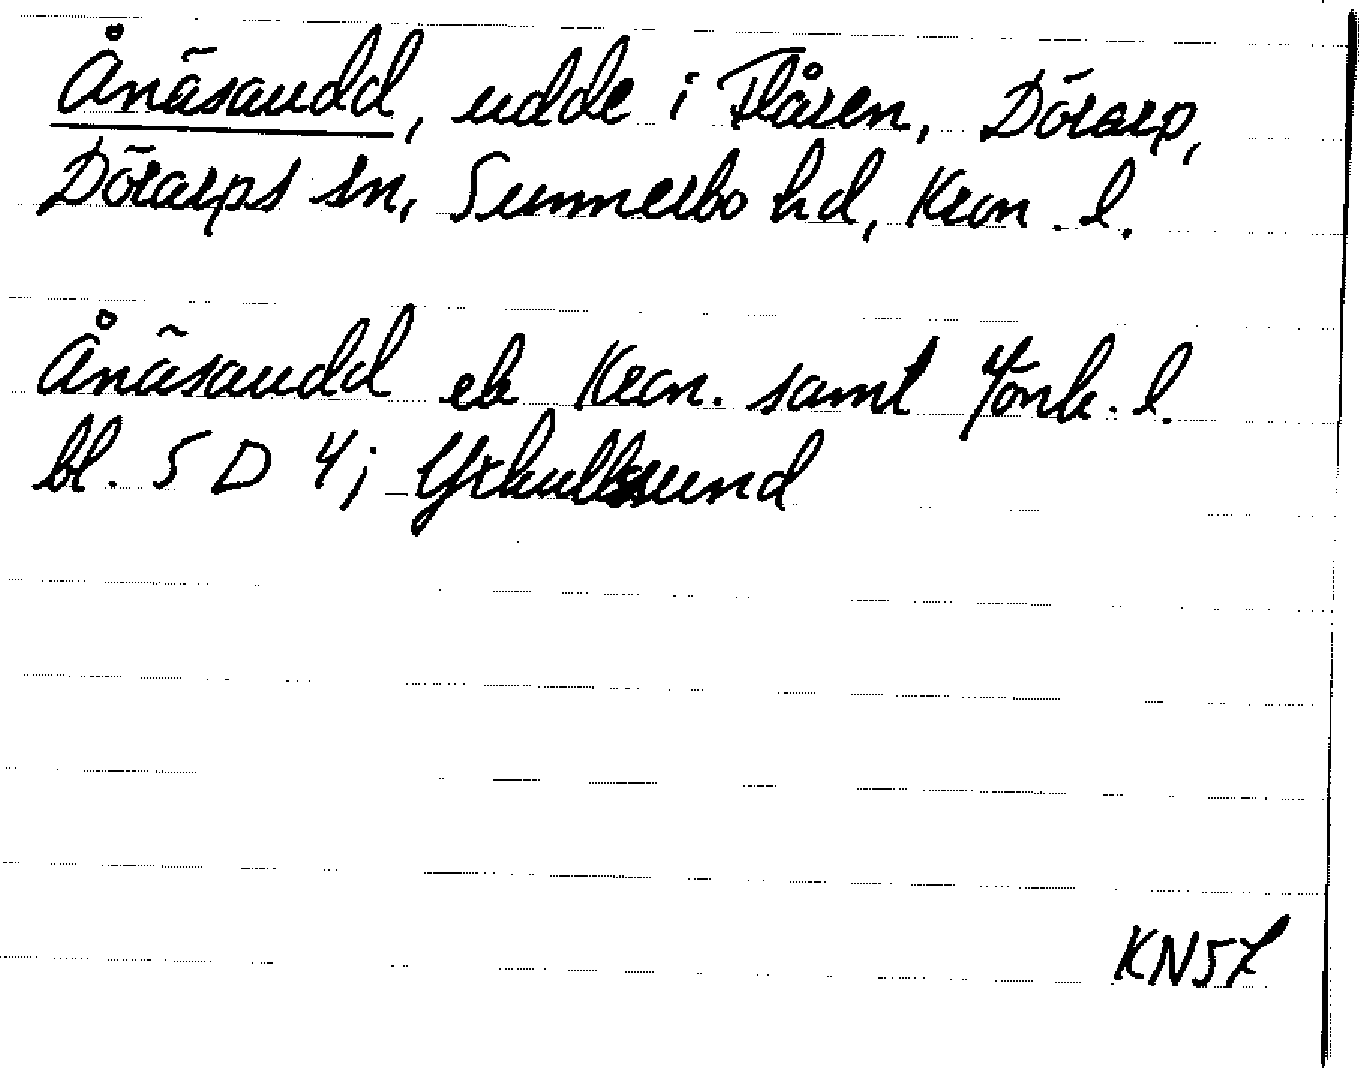 Ånäsaudd, udde i Flåren, Dörarp,
Dörarps sn, Sunnerbo hd, Kron. l.
Ånäsaudd ek Kron. samt Jönk. l.
bl. 5 D 4; Yxkullsund
KN57